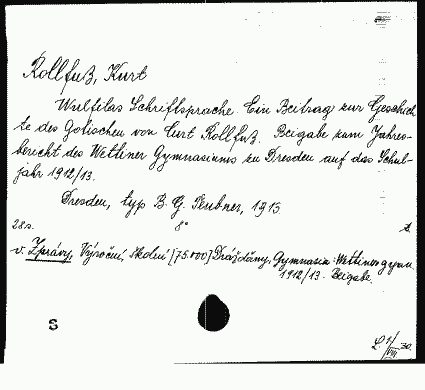 Rollfuß, Kurt
Wulfilas Schriftsprache. Ein Beitrag zur Geschich-
te des Gotischen von Curt Rollfuß. Beigabe zum Jahres-
bericht des Wettiner Gymnasiums zu Dresden auf das Schul-
jahr 1912/13.
Dresden, typ B. G. Teubner, 1913
28 s. 8°
v. Zprávy, Výroční, školní [75.000] Drážďany, Gymnasia: Wettiner gymn.
1912/13. Beigabe.
S
L 1/VII 30.